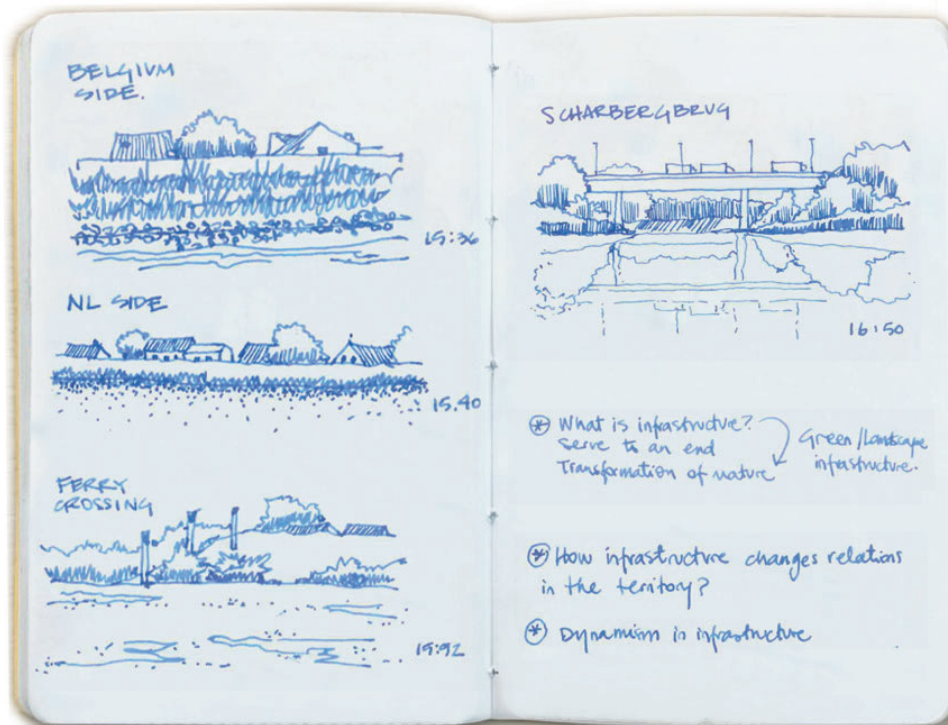 BELGIUM
SIDE.
15:36
NL SIDE
15.40
FERRY
CROSSING
15:52
SCHARBERGBRUG
16:50
* What is infrastructure?
serve to an end
Transformation of nature
Green/Landscape
infrastructure.
* How infrastructure changes relations
in the territory?
* Dynamism in infrastructure